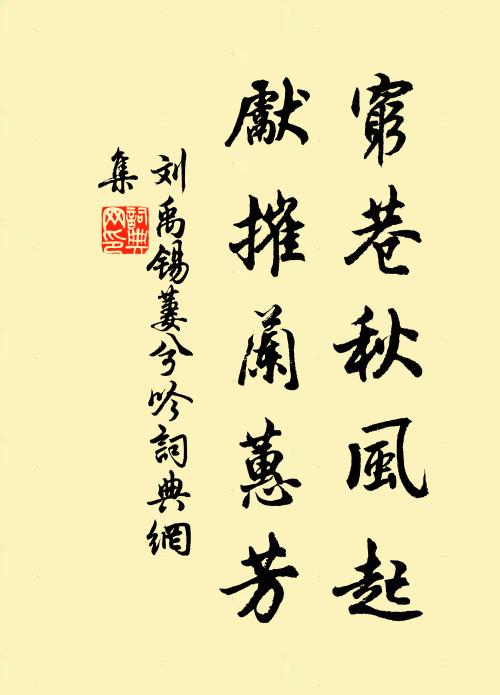 窮巷秋風起
獻摧蘭蕙芳
刘禹锡萋兮吟詞典網
集
詞典网印